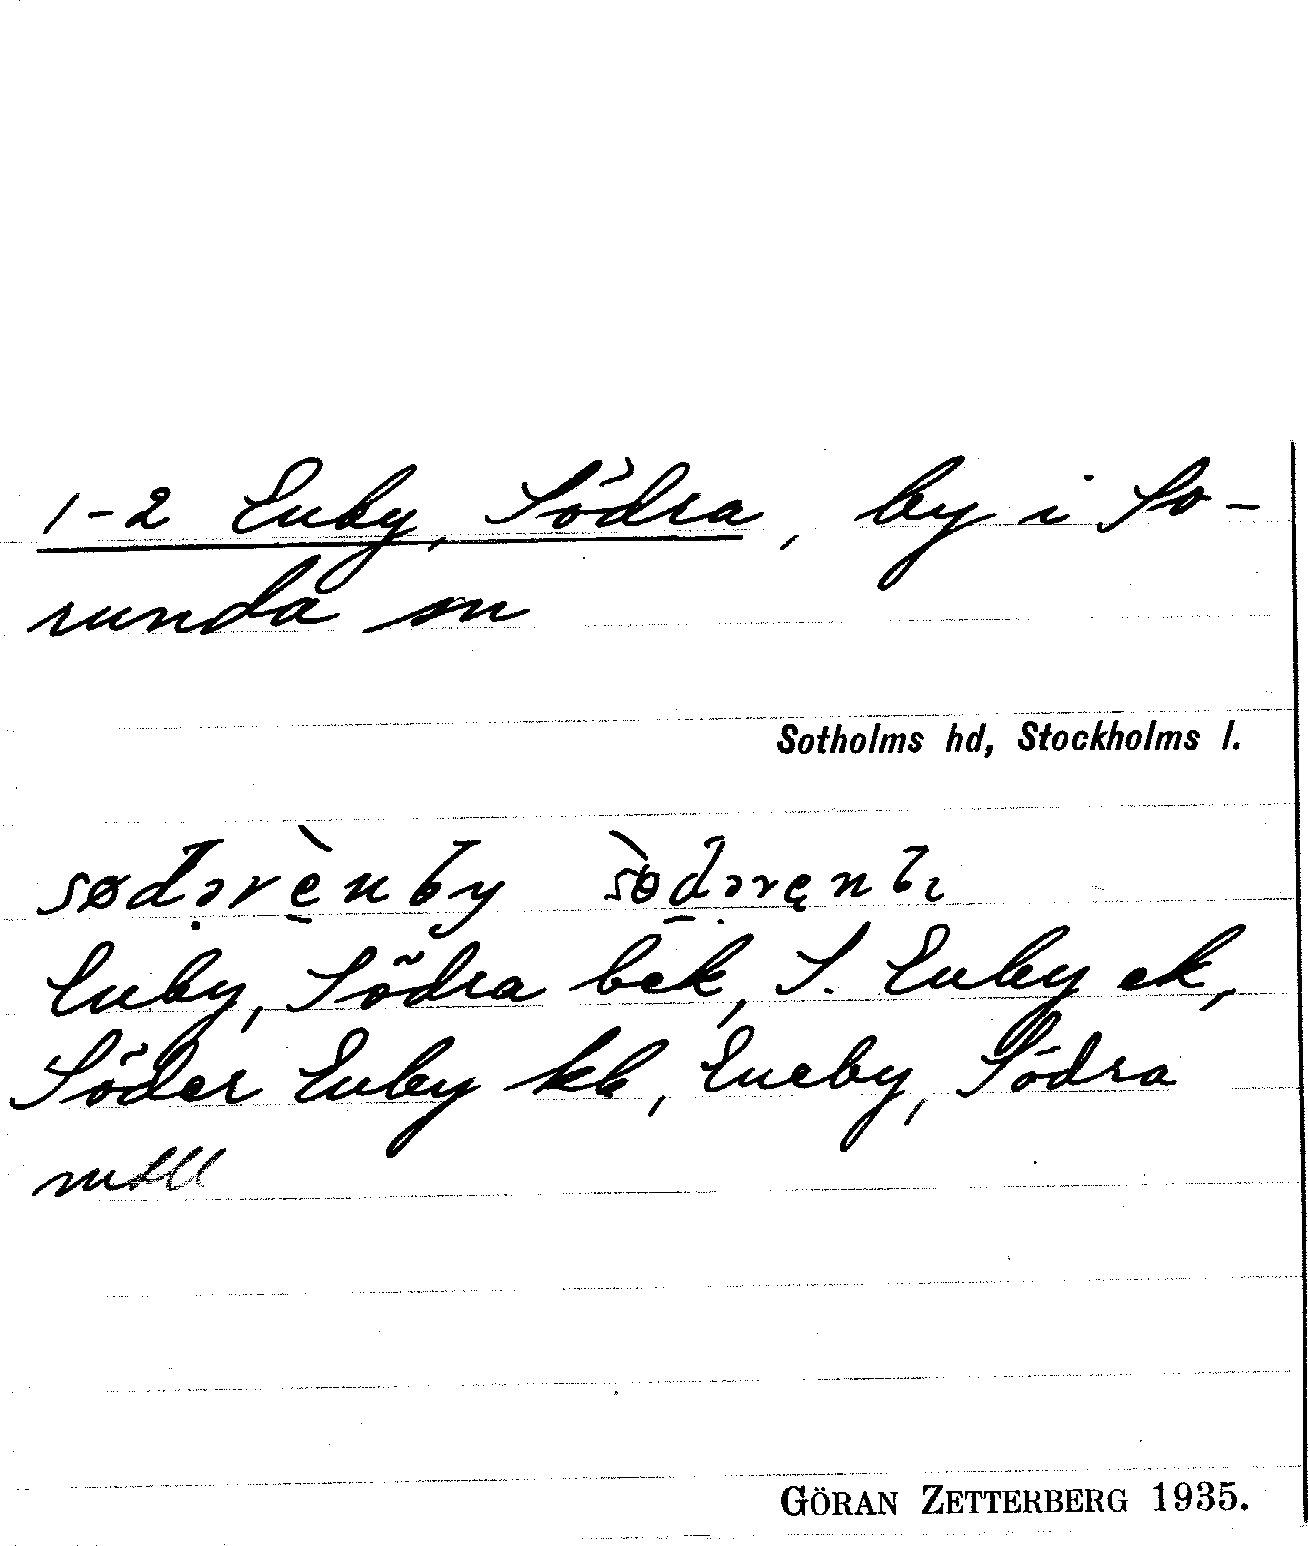 1-2 Enby, Södra, by i So-
runda sn
Sotholms hd, Stockholms l.
sødərènby sødərenbı
Enby, Södra bek, S. Enby ek,
Söder Enby kb, Eneby, Södra
mtll
GÖRAN ZETTERBERG 1935.